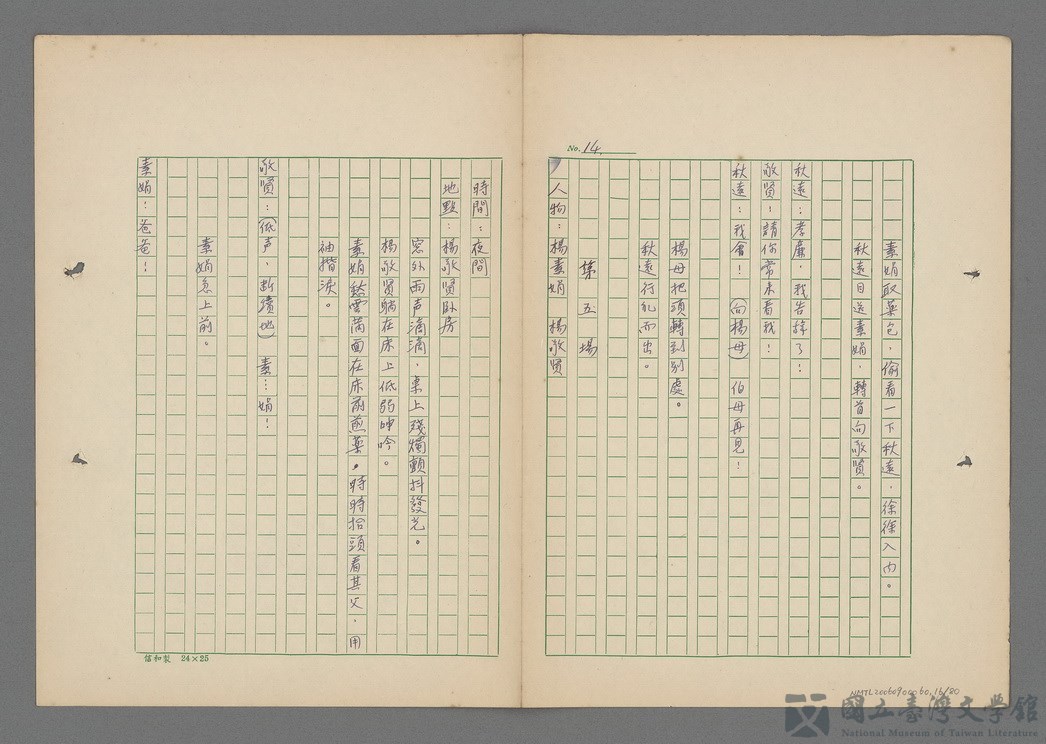 No. 14.
素娟取藥包，偷看一下秋遠，徐徐入內。
秋遠目送素娟，轉首向敬賢。
秋遠：孝廉，我告辞了！
敬賢：請你常來看我！
秋遠：我會！（向楊母）伯母再見！
楊母把頭轉到別處。
秋遠行礼而出。
第五場
人物：楊素娟 楊敬賢
時間：夜間
地點：楊敬賢卧房
窓外雨声滴滴，桌上殘燭顫抖發光。
楊敬賢躺在床上低弱呻吟。
素娟愁雲满面在床前煎藥，時時抬頭看其父，用
袖揩淚。
敬賢：（低声，断續地）素…娟！
素娟急上前。
素娟：爸爸！
信和製 24×25
NMTL20060900060.16/20
國立臺灣文學館
National Museum of Taiwan Literature